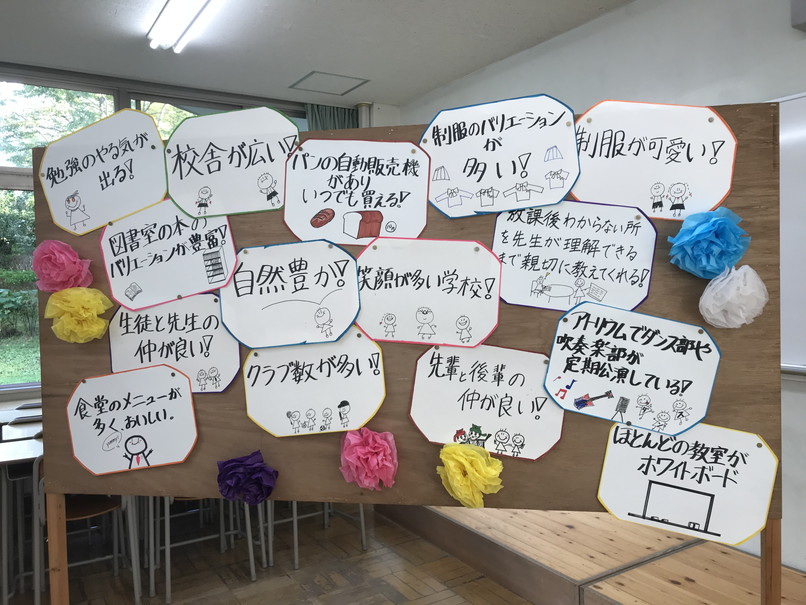 勉強のやる気が
出る!
校舎が広い!
パンの自動販売機
があり
いつでも買える!
制服のバリエーション
が
多い!
制服が可愛い!
図書室の本の
バリエーションが豊富!
自然豊か!
笑顔が多い学校!
放課後わからない所
を先生が理解できる
まで親切に教えてくれる!
生徒と先生の
仲が良い!
クラブ数が多い!
先輩と後輩の
仲が良い!
アトリウムでダンス部や
吹奏楽部が
定期公演している!
食堂のメニューが
多く、おいしい。
ほとんどの教室が
ホワイトボード